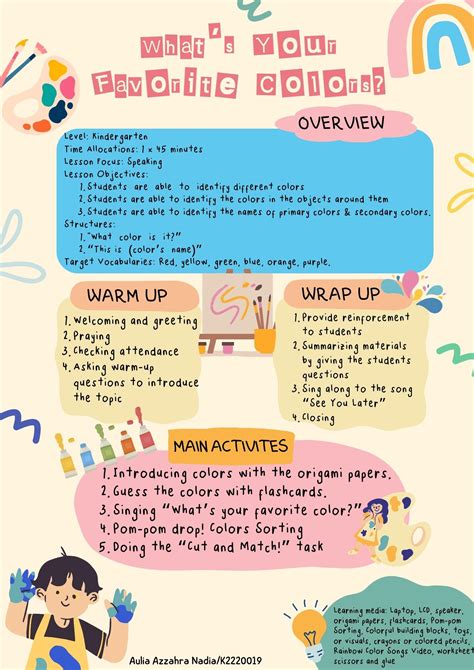 What's Your
Favorite Colors?
OVERVIEW
Level: Kindergarten
Time Allocations: 1 x 45 minutes
Lesson Focus: Speaking
Lesson Objectives:
1. Students are able to identify different colors
2. Students are able to identify the colors in the objects around them
3. Students are able to identify the names of primary colors & secondary colors.
Structures:
1. "What color is it?"
2. "This is (color's name)"
Target Vocabularies: Red, yellow, green, blue, orange, purple.
WARM UP
1. Welcoming and greeting
2. Praying
3. Checking attendance
4. Asking warm-up
questions to introduce
the topic
WRAP UP
1. Provide reinporcement
to students
2. Summarizing materials
by giving the students
questions
3. Sing along to the song
"See You Later"
4. Closing
MAIN ACTIVITES
1. Introducing colors with the origami papers.
2. Guess the colors with flashcards.
3. Singing "What's your favorite color?"
4. Pom-pom drop! Colors Sorting
5. Doing the "Cut and Match!" task
Learning media: Laptop, LCD, speaker,
origami papers, flashcards, Pom-pom
Sorting, Colorful building blocks, toys,
or visuals, crayons or colored pencils,
Rainbow Color Songs Video, worksheet
scissors and glue
Aulia Azzahra Nadia/K2220019